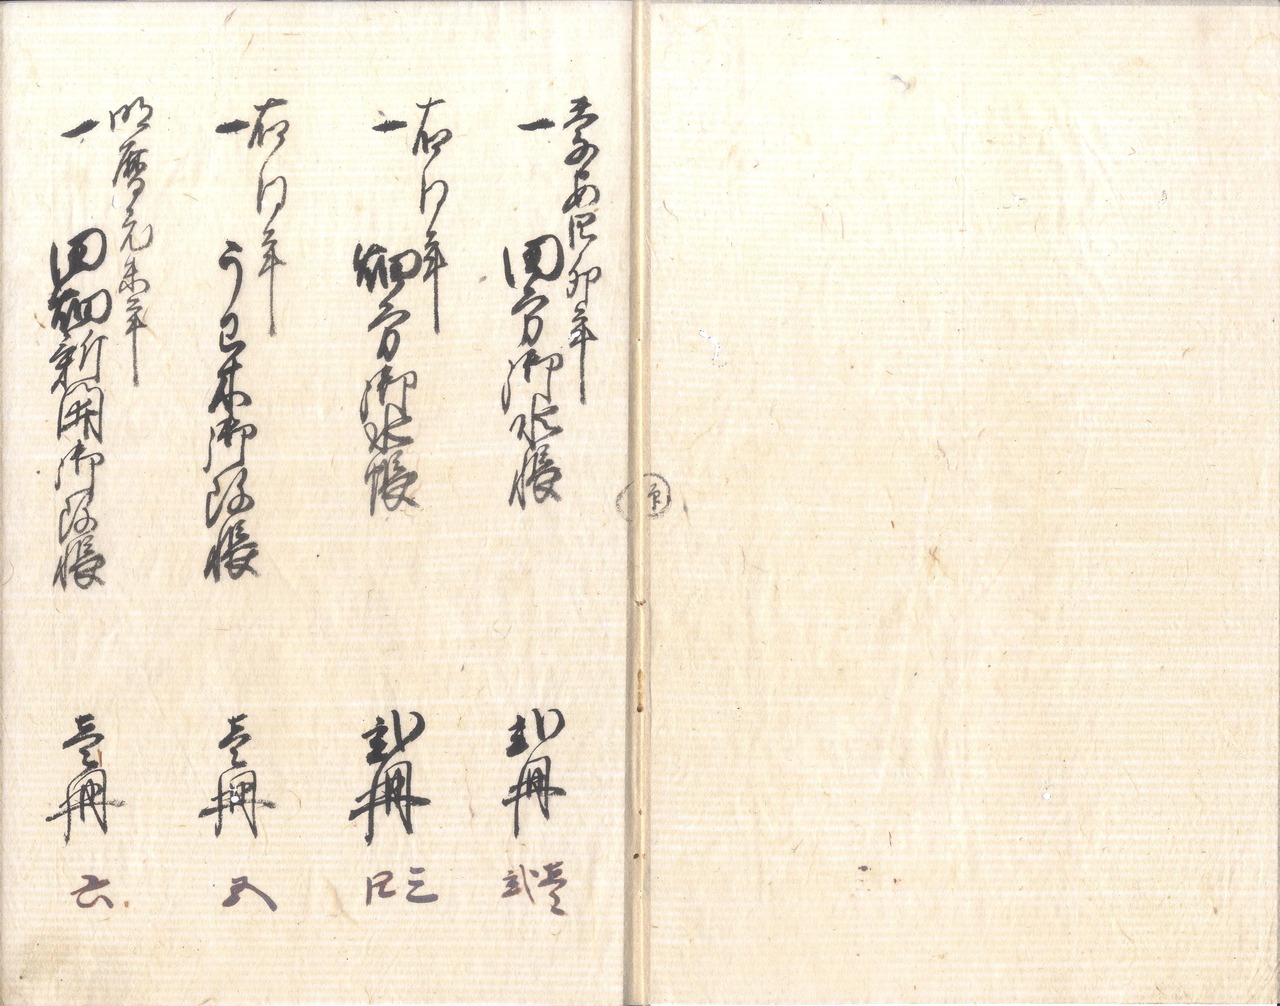 慶安四卯年
一 田方御水帳 弐冊 壱 弐
右同年
一 畑方御水帳 弐冊 三 四
右同年
一 御改帳 壱冊 五
明暦元未年
一 田畑新開御改帳 壱冊 六